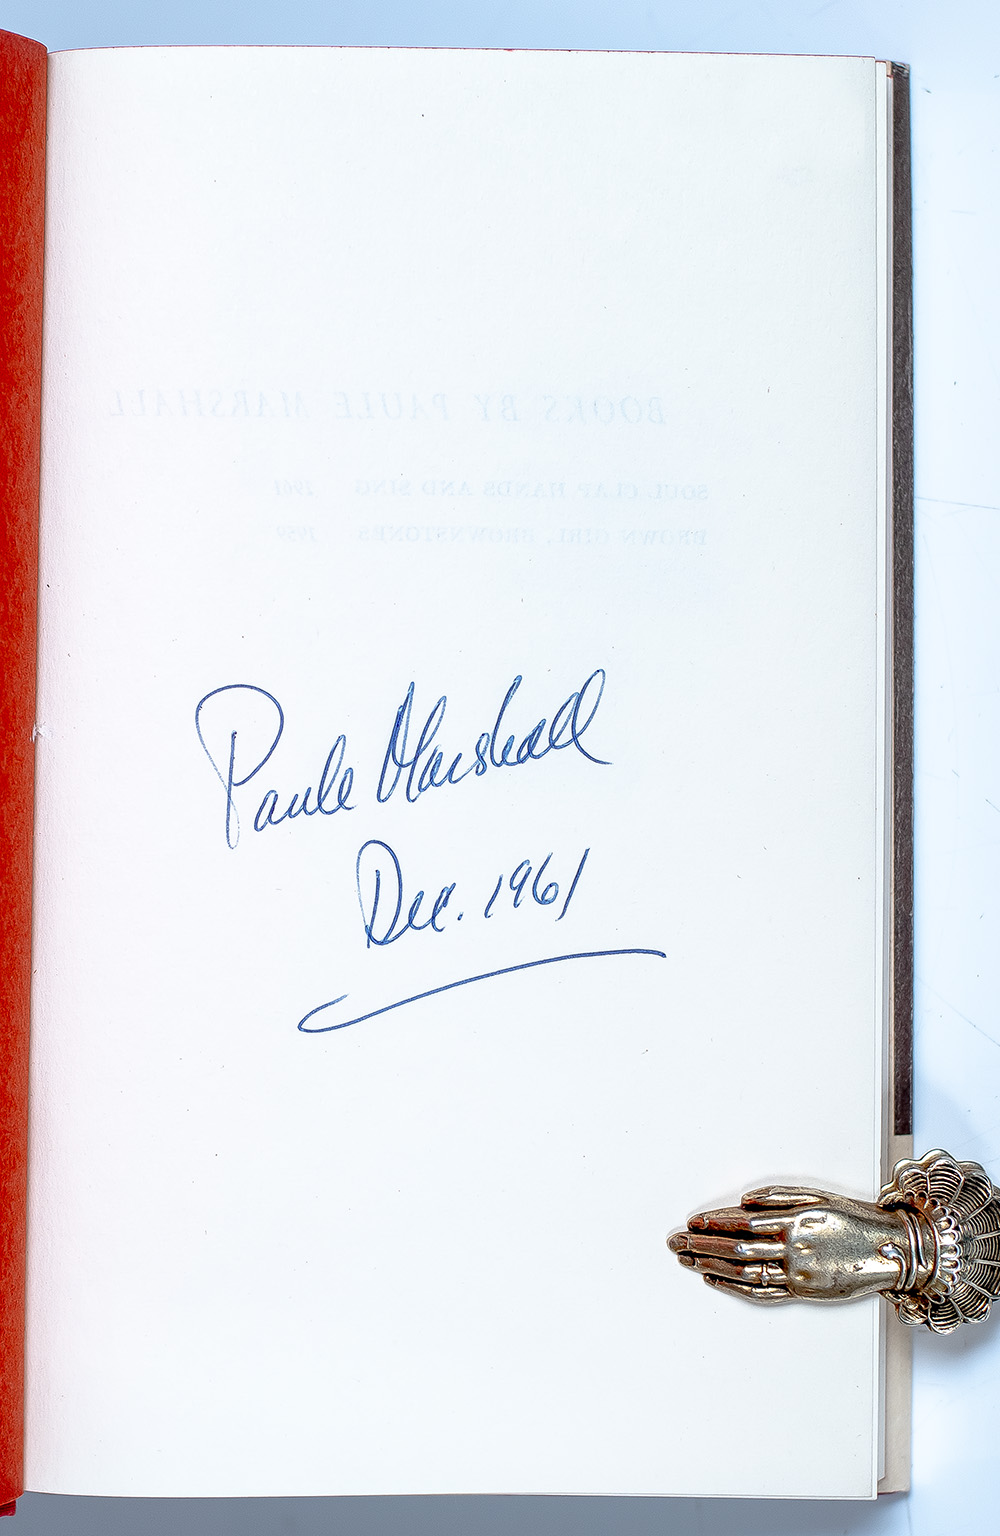 BOOKS BY PAULE MARSHALL
SOUL CLAP HANDS AND SING 1961
BROWN GIRL, BROWNSTONES 1959
Paule Marshall
Dec. 1961